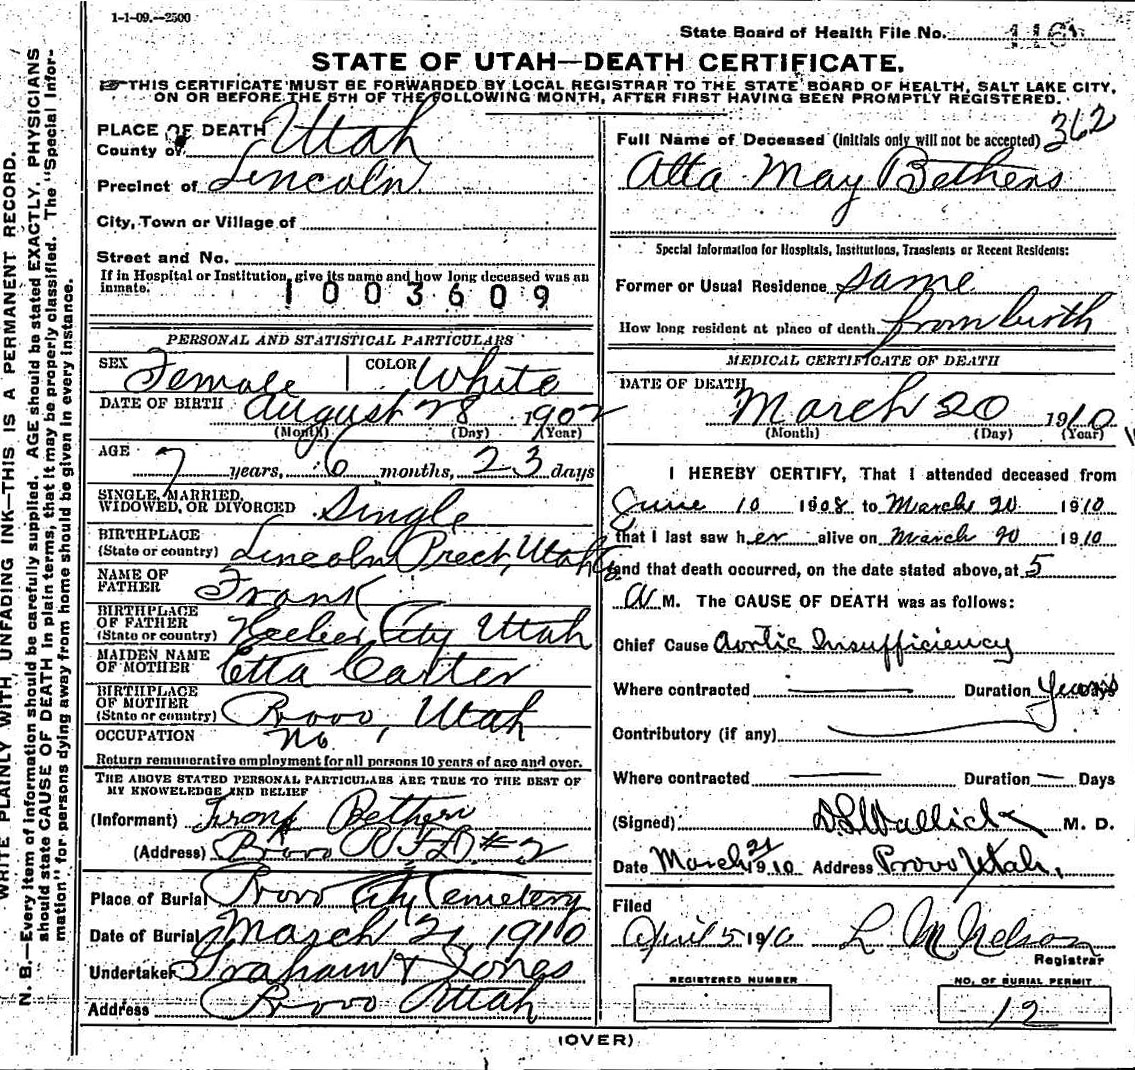 1-1-09.--2500
State Board of Health File No.
STATE OF UTAH—DEATH CERTIFICATE.
THIS CERTIFICATE MUST BE FORWARDED BY LOCAL REGISTRAR TO THE STATE BOARD OF HEALTH, SALT LAKE CITY,
ON OR BEFORE THE 5TH OF THE FOLLOWING MONTH, AFTER FIRST HAVING BEEN PROMPTLY REGISTERED.
WRITE PLAINLY WITH UNFADING INK—THIS IS A PERMANENT RECORD.
N. B.—Every item of information should be carefully supplied. AGE should be stated EXACTLY. PHYSICIANS
should state CAUSE OF DEATH in plain terms, that it may be properly classified. The "Special Infor-
mation" for persons dying away from home should be given in every instance.
PLACE OF DEATH
County of Utah
Precinct of Lincoln
City, Town or Village of
Street and No.
If in Hospital or Institution, give its name and how long deceased was an
inmate.
1003609
PERSONAL AND STATISTICAL PARTICULARS
SEX Female COLOR White
DATE OF BIRTH August 28 1902
(Month) (Day) (Year)
AGE 7 years, 6 months, 23 days
SINGLE, MARRIED,
WIDOWED, OR DIVORCED Single
BIRTHPLACE
(State or country) Lincoln Prect, Utah
NAME OF
FATHER Frank
BIRTHPLACE
OF FATHER
(State or country) Heeber City Utah
MAIDEN NAME
OF MOTHER Etta Carter
BIRTHPLACE
OF MOTHER
(State or country) Provo, Utah
OCCUPATION no
Return remunerative employment for all persons 10 years of age and over.
THE ABOVE STATED PERSONAL PARTICULARS ARE TRUE TO THE BEST OF
MY KNOWLEDGE AND BELIEF
(Informant) Frank Bethers
(Address) Provo RFD #2
Place of Burial Provo City Cemetery
Date of Burial March 21, 1910
Undertaker Graham & Jones
Address Provo Utah
362
Full Name of Deceased (Initials only will not be accepted)
Atta May Bethers
Special Information for Hospitals, Institutions, Transients or Recent Residents:
Former or Usual Residence same
How long resident at place of death from birth
MEDICAL CERTIFICATE OF DEATH
DATE OF DEATH
March 20 1910
(Month) (Day) (Year)
I HEREBY CERTIFY, That I attended deceased from
June 10 1908 to March 20 1910
that I last saw her alive on March 20 1910
and that death occurred, on the date stated above, at 5
a M. The CAUSE OF DEATH was as follows:
Chief Cause Aortic Insufficiency
Where contracted Duration Years
Contributory (if any)
Where contracted Duration — Days
(Signed) M. D.
Date March 21 1910 Address Provo Utah.
Filed
April 5 1910 L M Nelson
Registrar
REGISTERED NUMBER
NO. OF BURIAL PERMIT
12
(OVER)